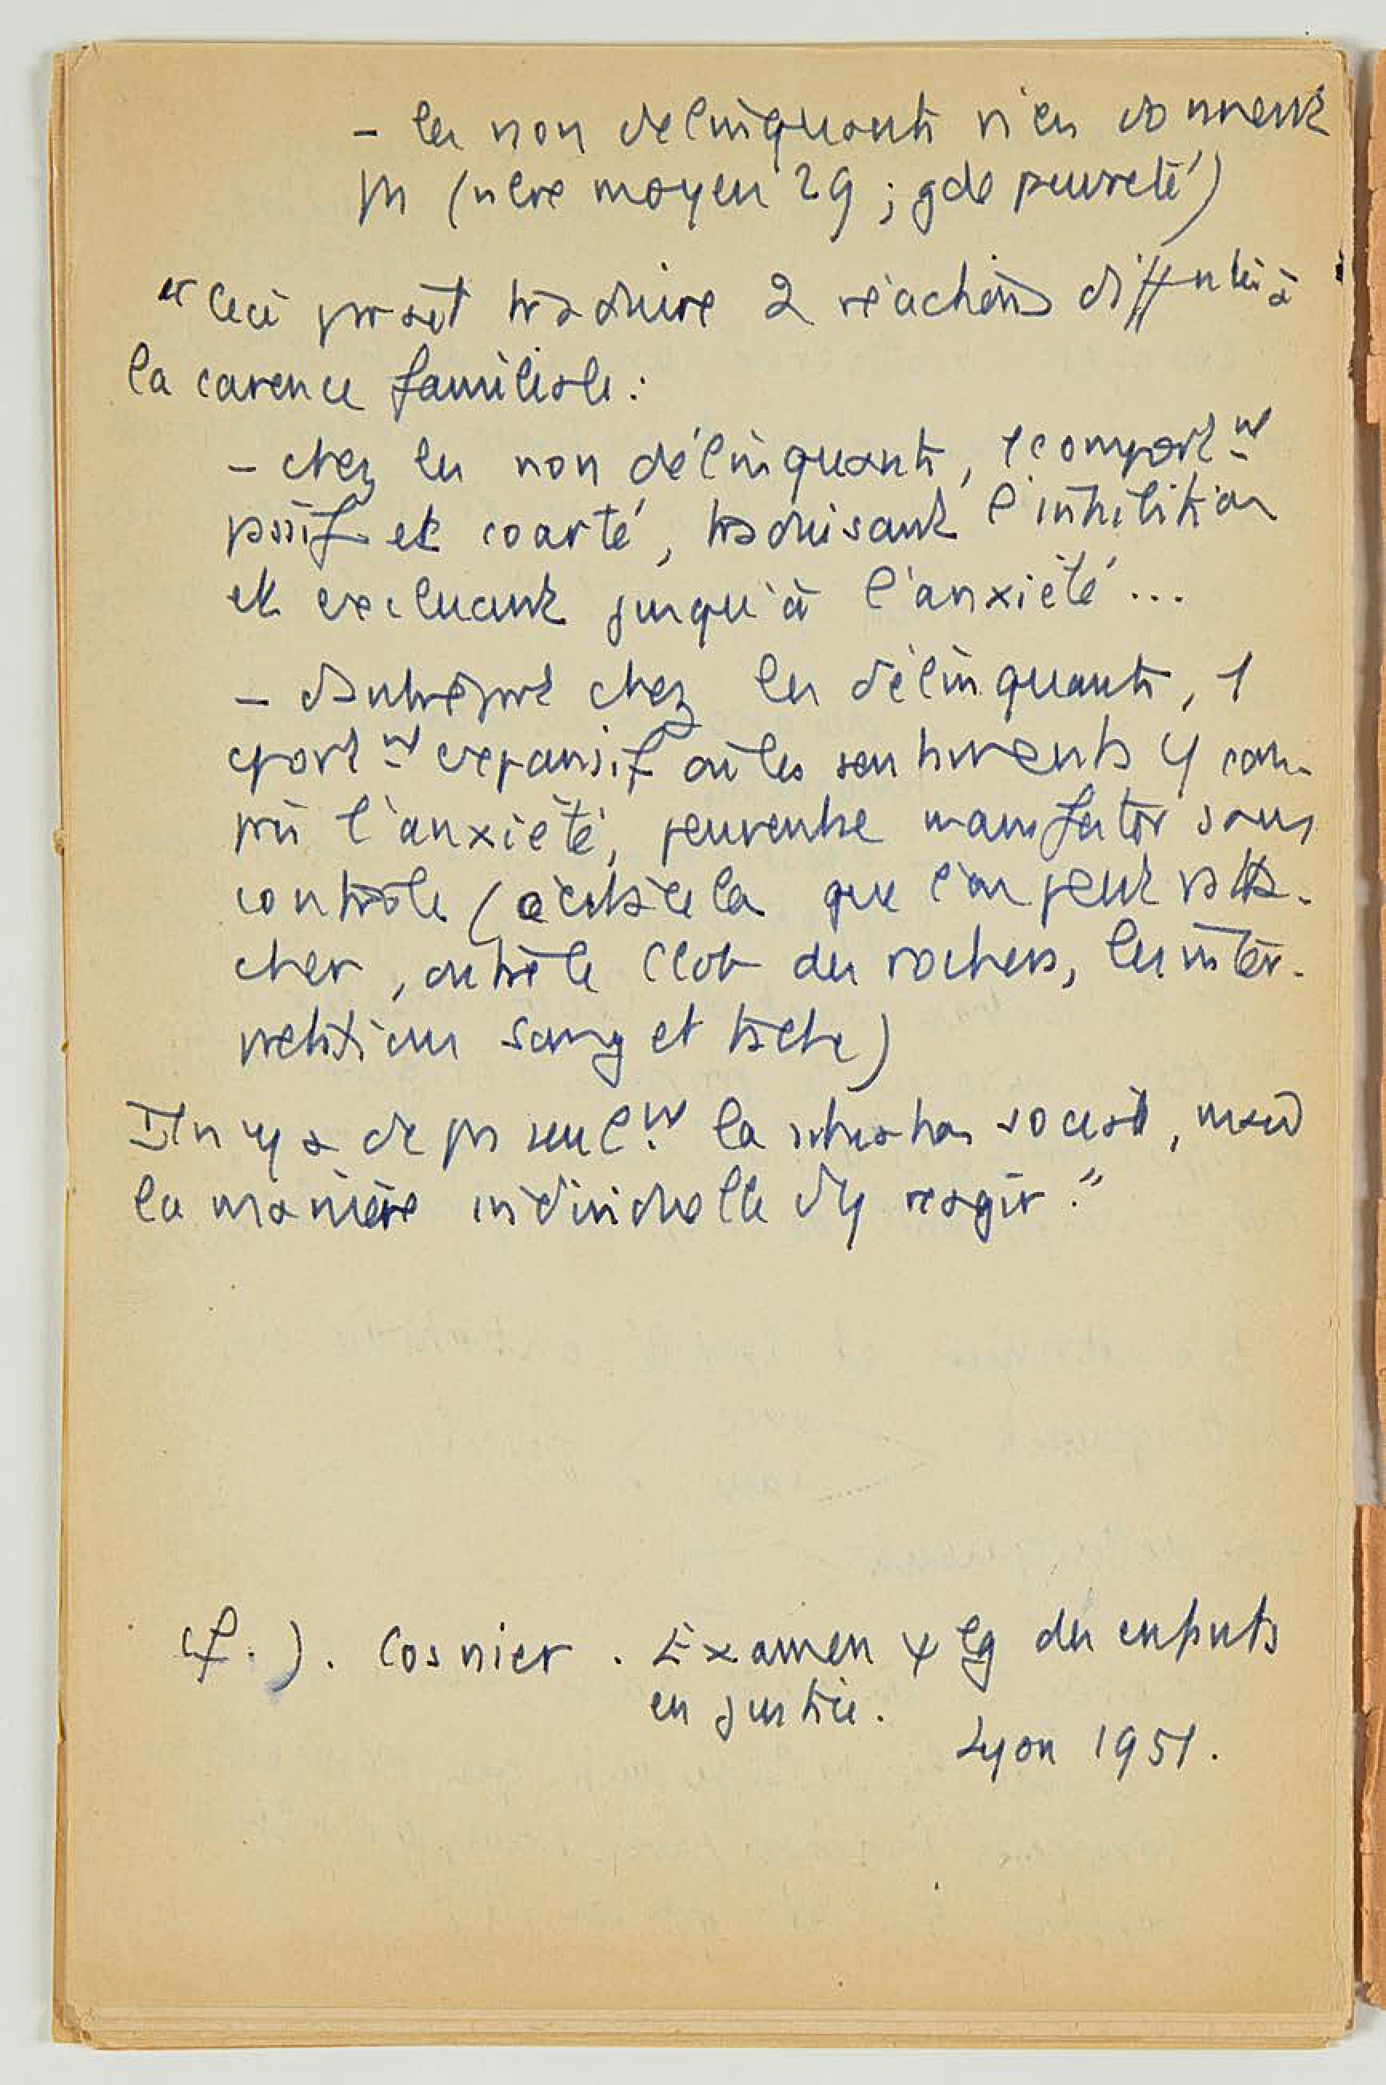 - les non delinquants n'en donnent
pas (nbre moyen 29 ; gde pauvreté)
"Ceci paraît traduire 2 réactions diffntes à
la carence familiale :
- chez les non délinquants, 1 comportnt
passif et coarté, traduisant l'inhibition
et excluant jusqu'à l'anxiété ...
- d'autre part chez les délinquants, 1
cportnt expansif où les sentiments y com-
pris l'anxiété, peuvent se manifester sans
contrôle (c'est à cela que l'on peut ratta-
cher, outre le Clob des rochers, les inter-
prétations sang et tache)
Il n'y a de pas seulnt la situation sociale, mais
la manière individuelle d'y reagir."
cf. J. Cosnier. Examen ψ lg des enfants
en justice.
Lyon 1951.